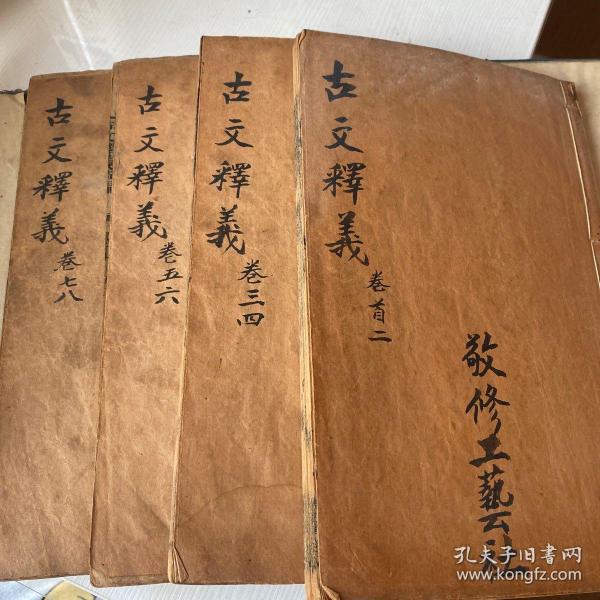 古文釋義
卷首二
敬修工藝社
古文釋義
卷三四
古文釋義
卷五六
古文釋義
卷七八
孔夫子旧书网
www.kongfz.com